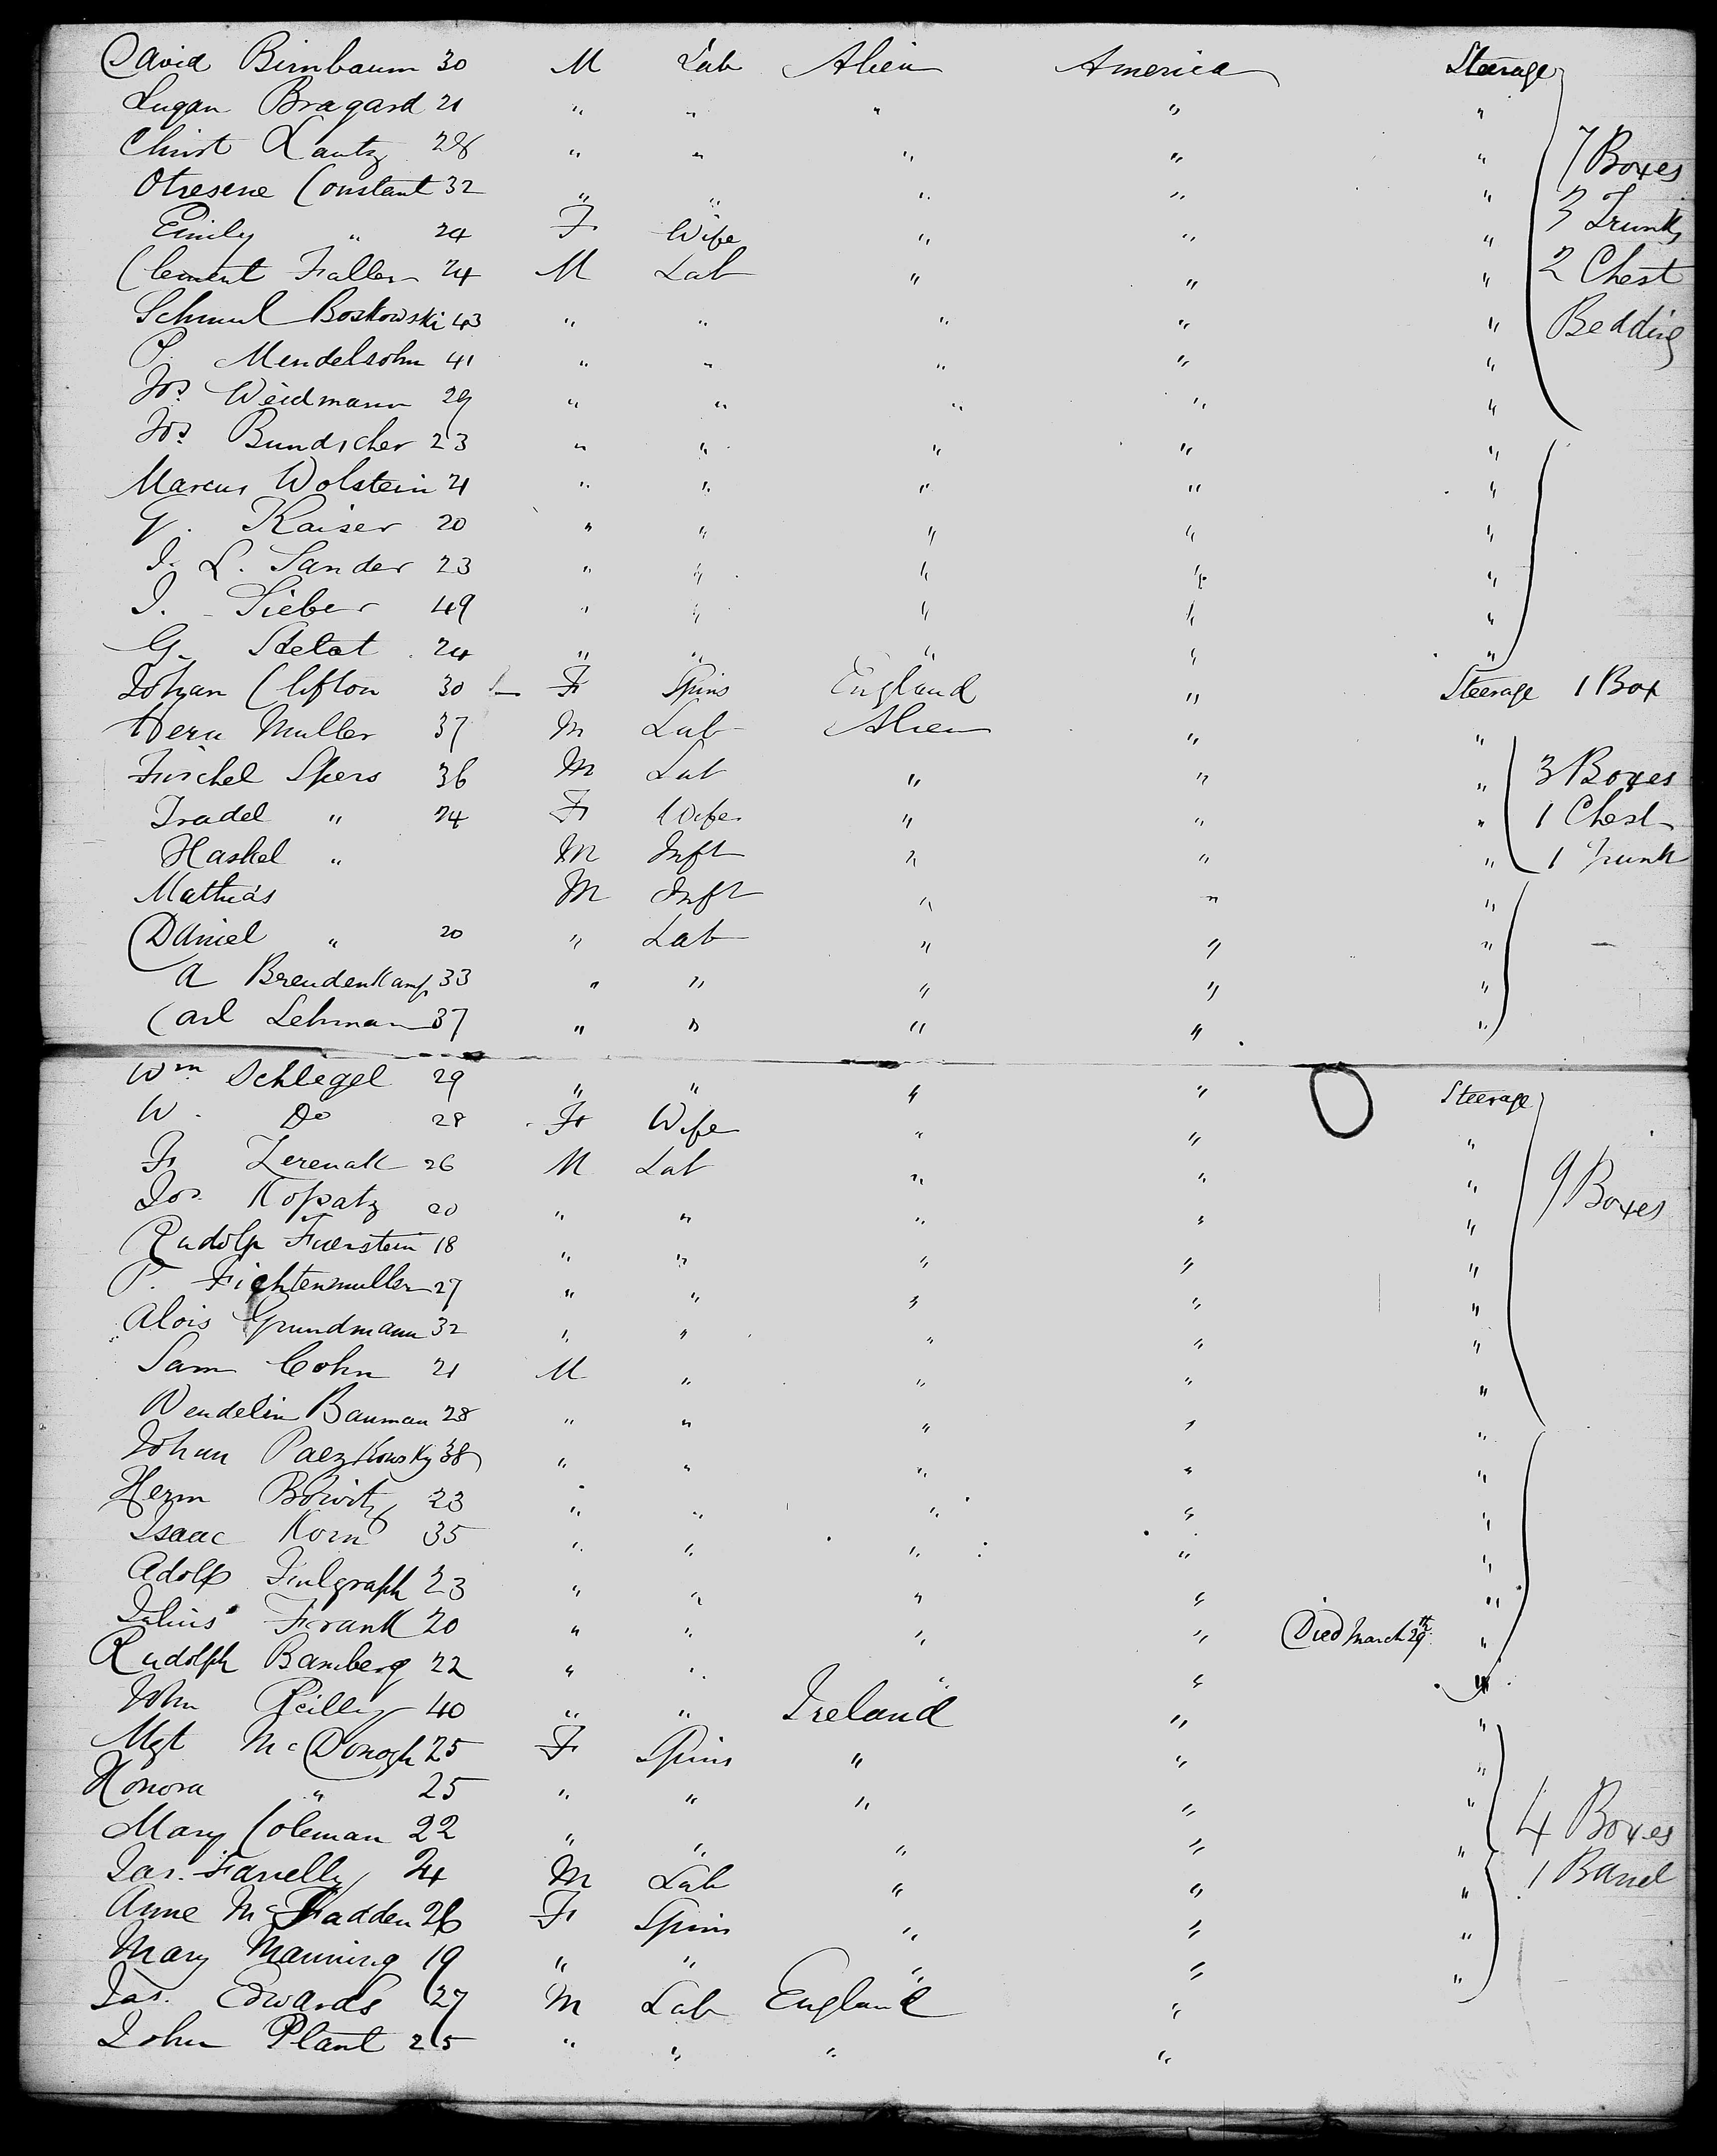 David Birnbaum 30 M Lab Alien America Steerage
Lugan Bragard 21 " " " " "
Christ Lautz 28 " " " " " 7 Boxes
Otresene Constant 32 " " " " " 3 Trunks
Emily " 24 F Wife " " "
Clement Faller 24 M Lab " " " 2 Chest
Schmul Boskowski 43 " " " " " Bedding
P. Mendelsohn 41 " " " " "
Jos Weidmann 29 " " " " "
Jos Bundscher 23 " " " " "
Marcus Wolstein 21 " " " " "
G. Kaiser 20 " " " " "
I. L. Sander 23 " " " " "
I. Sieber 49 " " " " "
G. Stelat 24 " " " " "
Johan Clifton 30 F Spins England " Steerage 1 Box
Hern Muller 37 M Lab Alien " "
Fischel Spers 36 M Lab " " " 3 Boxes
Tradel " 24 F Wife " " " 1 Chest
Haskel " M Inft " " " 1 Trunk
Mathias M Inft " " "
Daniel " 20 " Lab " " " —
A Breudenkamp 33 " " " " "
Carl Lehman 37 " " " " "
Wm Schlegel 29 " " " " Steerage
W. Do 28 F Wife " " "
F Zerenak 26 M Lab " " "
Jos. Kopatz 20 " " " " " 9 Boxes
Rudolp Fuerstein 18 " " " " "
P. Fichtenmuller 27 " " " " "
Alois Grundmann 32 " " " " "
Sam Cohn 21 M " " " "
Wendelin Bauman 28 " " " " "
Johan Paezkowsky 38 " " " " "
Herm Bowitz 23 " " " " "
Isaac Korn 35 " " " " "
Adolp 23 " " " " "
Julius Frank 20 " " " " Died March 29th "
Rudolph Bamberg 22 " " " " "
John Reilly 40 " " Ireland " "
Mgt McDonogh 25 F Spins " " "
Honora " 25 " " " " "
Mary Coleman 22 " " " " " 4 Boxes
Jas. Farrelly 24 M Lab " " " 1 Barrel
Anne McFadden 26 F Spins " " "
Mary Manning 19 " " " " "
Jas. Edwards 27 M Lab England "
John Plant 25 " " " "